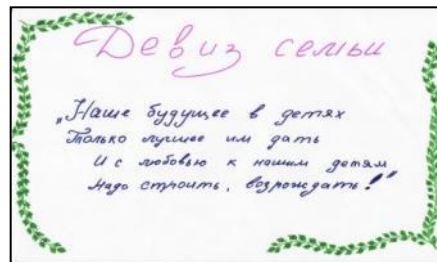 Девиз семьи
„Наше будущее в детях
Только лучшее им дать
И с любовью к нашим детям
Надо строить, возрождать!“